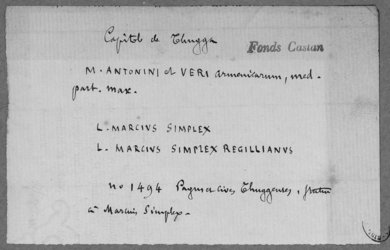 Capitol de Thugga
Fonds Castan
M. ANTONINI et VERI armeniacarum, med.
part. max.
L. MARCIUS SIMPLEX
L. MARCIUS SIMPLEX REGILLIANVS
no 1494 Pagus et cives Thuggenses, statue
à Marcius Simplex.